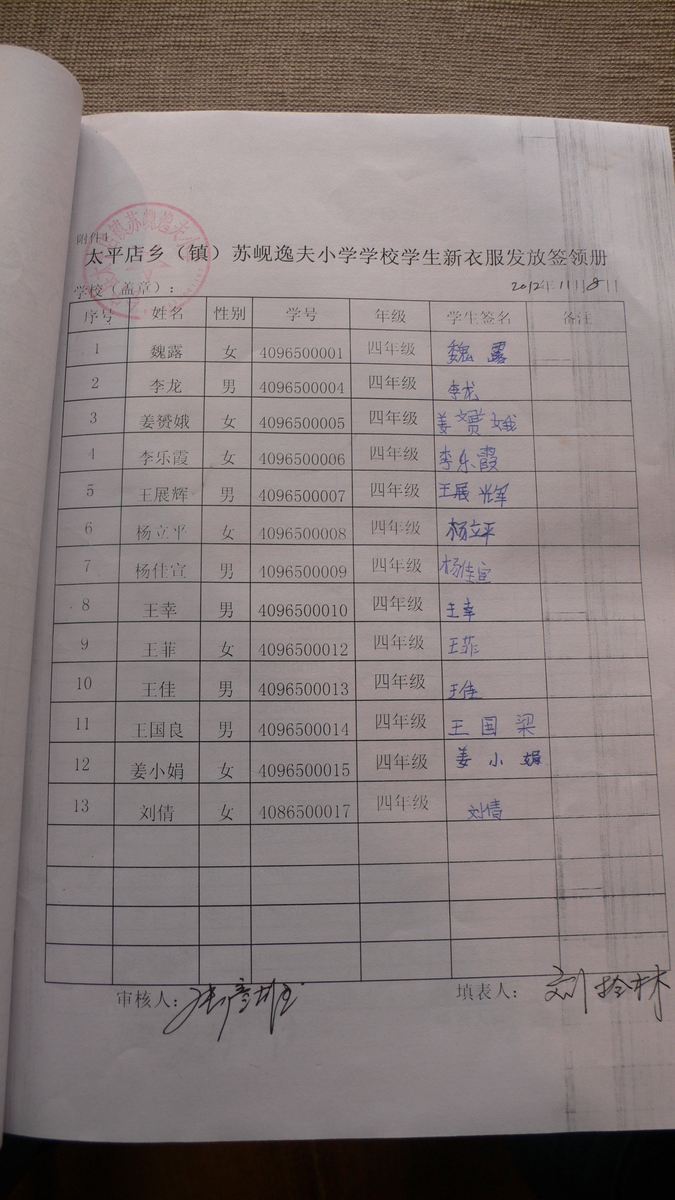 附件1
太平店乡（镇）苏岘逸夫小学学校学生新衣服发放签领册
学校（盖章）： 2012年11月8日
序号 姓名 性别 学号 年级 学生签名 备注
1 魏露 女 4096500001 四年级 魏露
2 李龙 男 4096500004 四年级 李龙
3 姜赟娥 女 4096500005 四年级 姜赟娥
4 李乐霞 女 4096500006 四年级 李乐霞
5 王展辉 男 4096500007 四年级 王展辉
6 杨立平 女 4096500008 四年级 杨立平
7 杨佳宣 男 4096500009 四年级 杨佳宣
8 王幸 男 4096500010 四年级 王幸
9 王菲 女 4096500012 四年级 王菲
10 王佳 男 4096500013 四年级 王佳
11 王国良 男 4096500014 四年级 王国梁
12 姜小娟 女 4096500015 四年级 姜小娟
13 刘倩 女 4086500017 四年级 刘倩
审核人： 填表人：